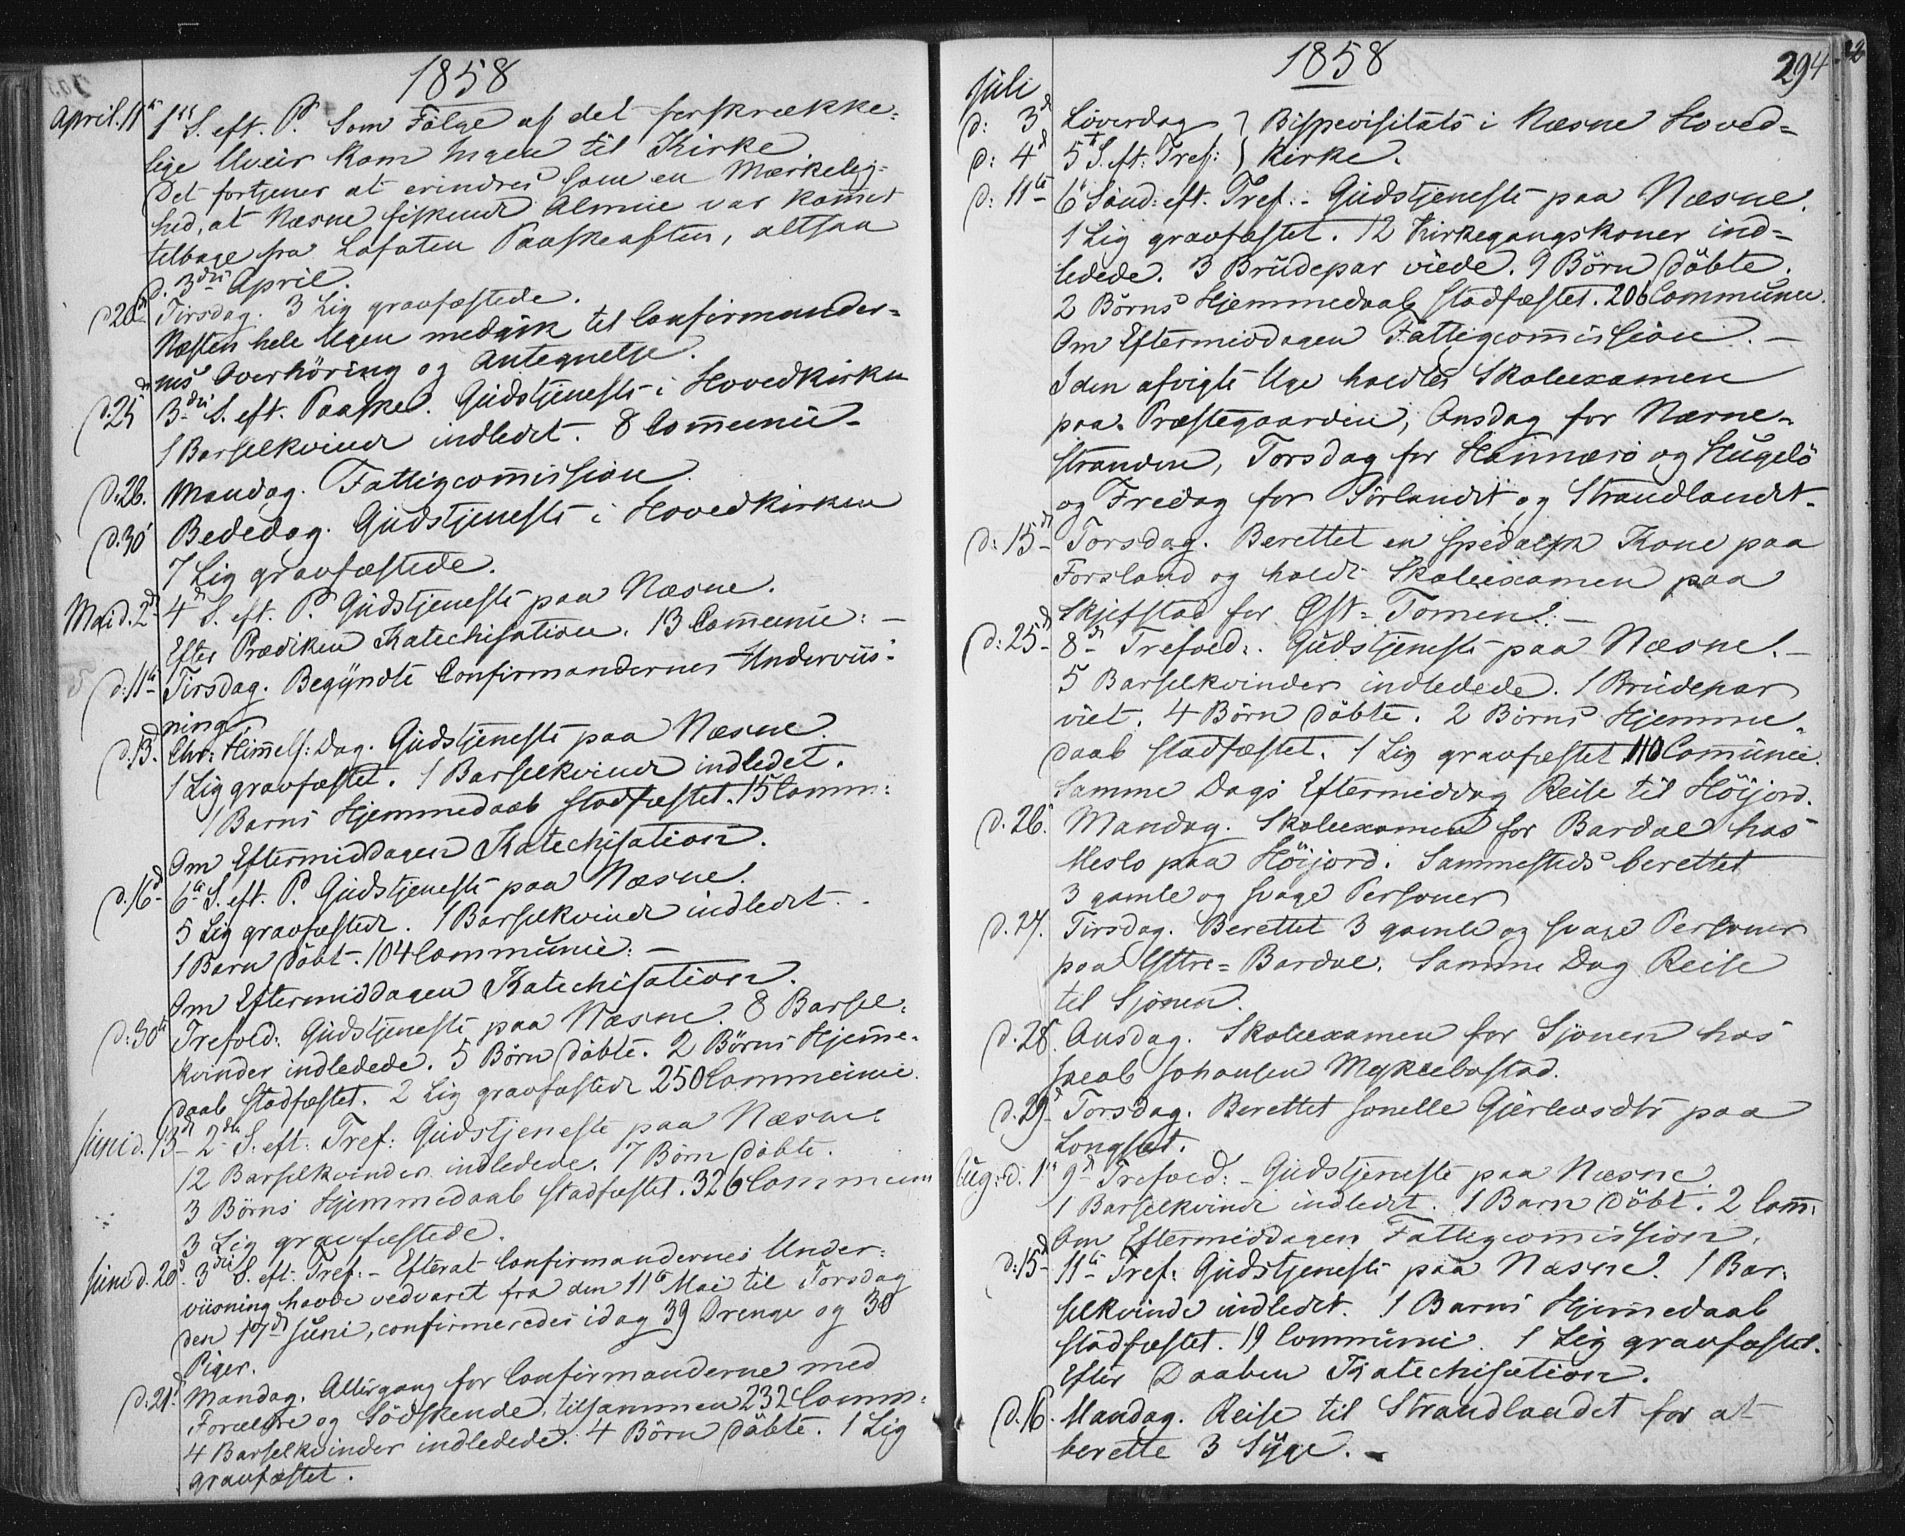 1858
April. 11te 1ste S. eft. P. Som Fölge af det forskrække-
lige Uveir kom Ingen til Kirke
Det fortjener at erindres som en Mærkelig-
hed, at Næsne fiskende Almue var kommet
tilbage fra Lofoten Paaskeaften, altsaa
d. 3die April.
d. 20de Tirsdag. 3 Lig gravfæstede.
Næsten hele Ugen medgik til Confirmander-
nes Overhöring og Antegnelse.
d. 25de 3die S. eft. Paaske. Gudstjeneste i Hovedkirken
1 Barselkvinde indledet. 8 Communi-
d. 26. Mandag. Fattigcommission.
d. 30 Bededag. Gudstjeneste i Hovedkirken
7 Lig gravfæstede.
Mai d. 2d 4de S. eft. P. Gudstjeneste paa Næsne.
Efter Prædiken Katechisation. 13 Communie: -
d: 11te Tirsdag. Begyndte Confirmandernes Underviis-
ning.
d. 13d Chr: Himmelf: Dag. Gudstjeneste paa Næsne.
1 Lig gravfæstet. 1 Barselkvinde indledet.
1 Barns Hjemmedaab stadfæstet. 15 Comm:
Om Eftermiddagen Katechisation.
d. 16d 6te S. eft. P. Gudstjeneste paa Næsne.
5 Lig gravfæstede. 1 Barselkvinde indledet.
1 Barn döbt. 104 Communie: -
Om Eftermiddagen Katechisation.
d: 30te Trefold: Gudstjeneste paa Næsne. 8 Barsel-
kvinder indledede. 5 Börn döbte. 2 Börns Hjemme-
daab stadfæstet. 2 Lig gravfæstede 250 Communie.
Juni d. 13d 2den S. eft. Tref: Gudstjeneste paa Næsne
12 Barselkvinder indledede. 7 Börn döbte.
3 Börns Hjemmedaab stadfæstet. 326 Communi
3 Lig gravfæstede.
Juni d. 20d 3die S. eft. Tref: - Efterat Confirmandernes Under-
viisning havde vedvaret fra den 11te Mai til Torsdag
den 17de Juni, confirmeredes idag 39 Drenge og 30
Piger.
d. 21d Mandag. Altergang for Confirmanderne med
Forældre og Södskende, tilsammen 232 Comm:
4 Barselkvinder indledede. 4 Börn döbte. 1 Lig
gravfæstet.
1858
294
Juli
d: 3d Löverdag } Bispevisitats i Næsne Hoved-
d: 4d 5te S. eft: Tref: } kirke.
d: 11te 6te Sönd: eft. Tref: - Gudstjeneste paa Næsne.
1 Lig gravfæstet. 12 Kirkegangskoner ind-
ledede. 3 Brudepar viede. 9 Börn döbte.
2 Börns Hjemmedaab stadfæstet. 206 Communie.
Om Eftermiddagen Fattigcommission. -
I den afvigte Uge holdtes Skoleexamen
paa Præstegaarden, Onsdag for Næsne-
stranden, Torsdag for Hannæsö og Hugelö
og Fredag for Sörlandet og Strandlandet.
d: 15de Torsdag. Berettet en spedalsk Kone paa
Forsland og holdt Skoleexamen paa
Skjefstad for Öst-Tomen. -
d: 25d 8de Trefold: Gudstjeneste paa Næsne. -
5 Barselkvinder indledede. 1 Brudepar
viet. 4 Börn döbte. 2 Börns Hjemme-
daab stadfæstet. 1 Lig gravfæstet 110 Communie.
Samme Dags Eftermiddag Reise til Höijord.
d. 26. Mandag. Skoleexamen for Bardal hos
Meslo paa Höijord. Sammesteds berettet
3 gamle og svage Personer
d. 27. Tirsdag. Berettet 3 gamle og svage Personer
paa Yttre-Bardal. Samme Dag Reise
til Sjonen.
d. 28. Onsdag. Skoleexamen for Sjonen hos
Jacob Johansen Myklebostad.
d. 29d Torsdag. Berettet Jonelle Gjerlovsdtr paa
Longset.
Aug: d. 1ste 9de Trefold: - Gudstjeneste paa Næsne.
1 Barselkvinde indledet. 1 Barn döbt. 2 Comm:
Om Eftermiddagen Fattigcommission.
d: 15d 11te Tref: Gudstjeneste paa Næsne. 1 Bar-
selkvinde indledet. 1 Barns Hjemmedaab
stadfæstet. 19 Communie. 1 Lig gravfæstet.
Efter Daaben Katechisation.
d. 16. Mandag. Reise til Strandlandet for at
berette 3 Syge.